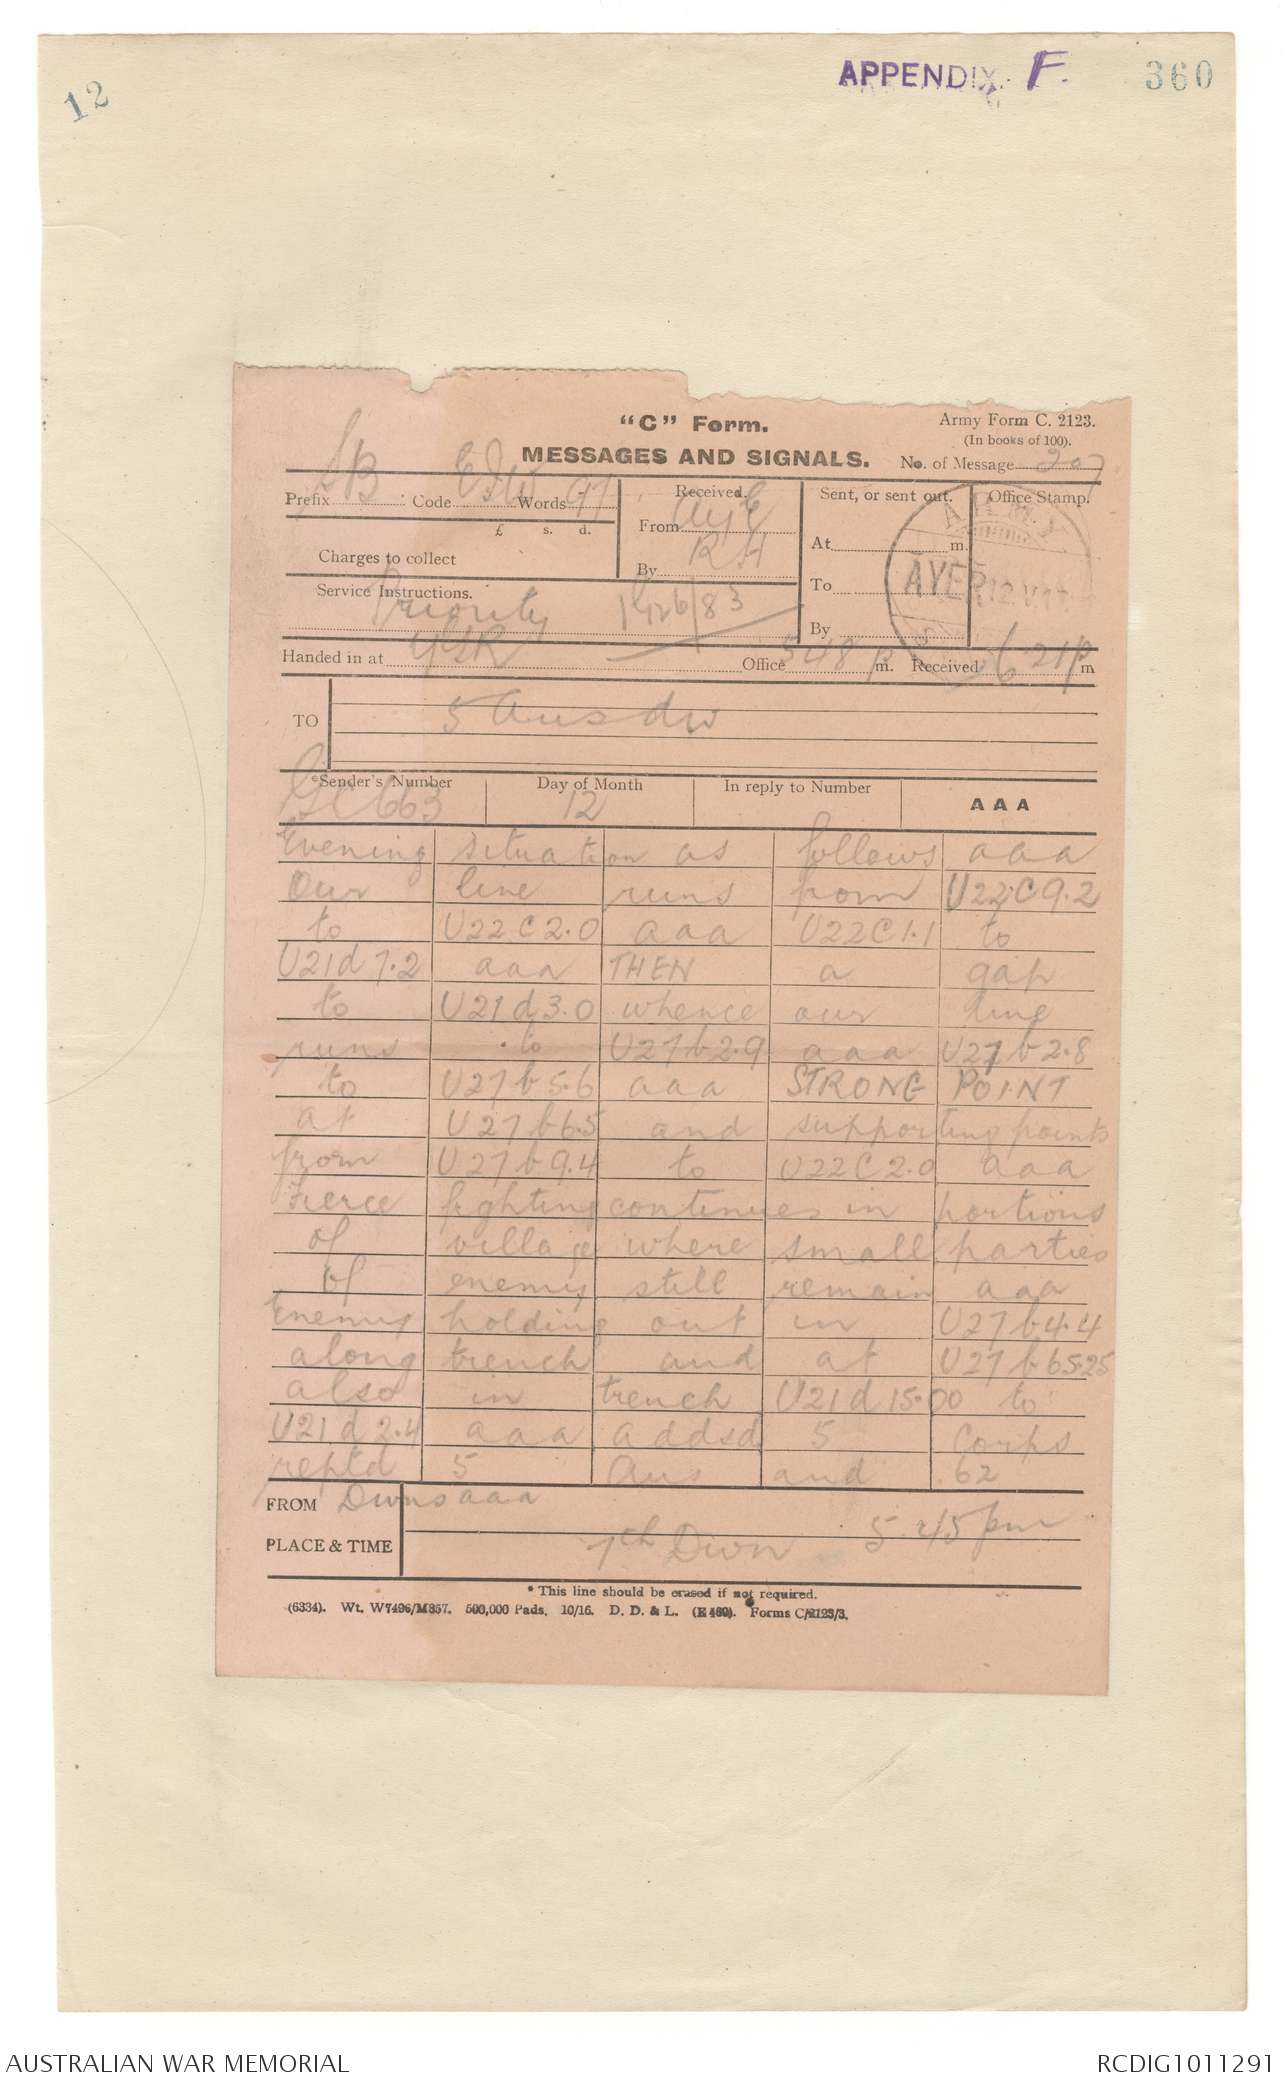 12
APPENDIX F.
360
"C" Form.
Army Form C. 2123.
(In books of 100).
MESSAGES AND SIGNALS.
No. of Message 207
Prefix SB Code Words 97
Received.
From AyE
By RH
Sent, or sent out.
At m.
To
By
Office Stamp.
ARMY
AYER
12 V 17
£ s. d.
Charges to collect
Service Instructions.
Priority
Handed in at YGR Office 548 p m. Received 6.21 p m
TO 5 Aus div
*Sender's Number
Day of Month
In reply to Number
AAA
GC663
12
Evening situation as follows aaa
Our line runs from U22C9.2
to U22C2.0 aaa U22C1.1 to
U21d7.2 aaa THEN a gap
to U21d3.0 whence our line
runs to U27b2.9 aaa U27b2.8
to U27b5.6 aaa STRONG POINT
at U27b6.5 and supporting points
from U27b9.4 to U22C2.0 aaa
Fierce fighting continues in portions
of village where small parties
of enemy still remain aaa
Enemy holding out in U27b4.4
along trench and at U27b65.25
also in trench U21d15.00 to
U21d2.4 aaa addsd 5 Corps
reptd 5 Aus and 62
FROM Divns aaa
PLACE & TIME
7th Divn 5.45 pm
* This line should be erased if not required.
(6334). Wt. W7496/M857. 500,000 Pads. 10/16. D. D. & L. (E 489). Forms C/2123/3.
AUSTRALIAN WAR MEMORIAL
RCDIG1011291